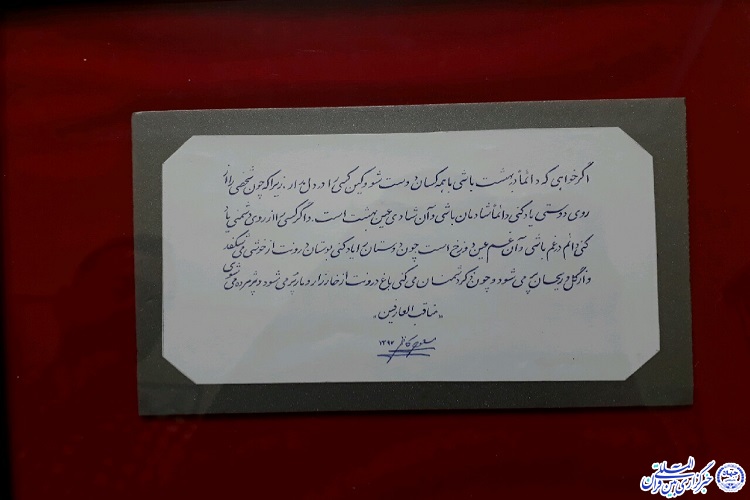 اگر خواهی که دائماً در بهشت باشی با همه کسان دوست شو و کین کسی را در دل مدار، زیرا که چون شخصی را از
روی دوستی یاد کنی دائماً شادمان باشی و آن شادی عین بهشت است. و اگر کسی را از روی دشمنی یاد
کنی دائم در غم باشی و آن غم عین دوزخ است چون دوستان را یاد کنی بوستان درونت از خوشی می شکفد
و از گل و ریحان پر می شود و چون ذکر دشمنان می کنی باغ درونت از خار زار و مار پر می شود و پژمرده می شوی
"مناقب العارفین"
۱۳۹۲
خبرگزاری بین المللی قرآن